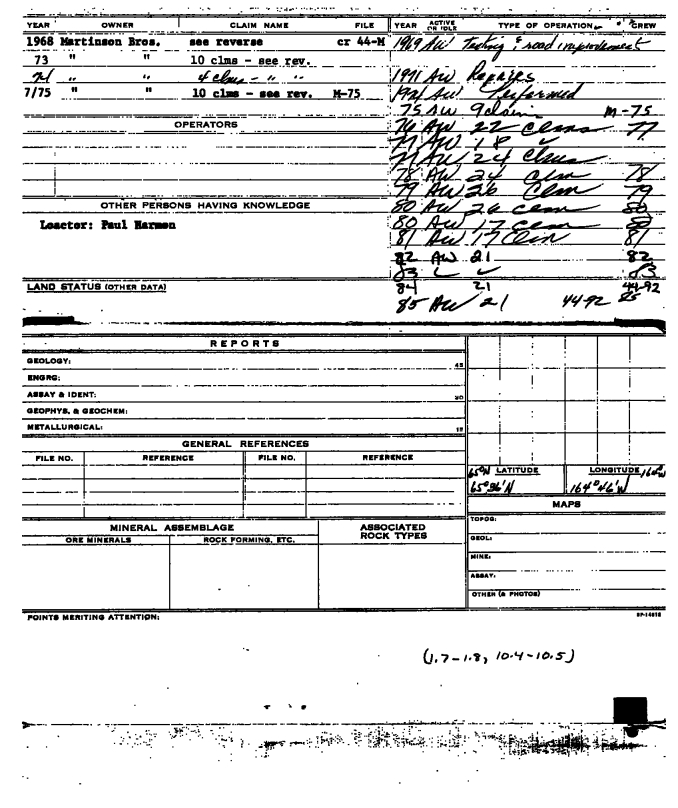 YEAR OWNER CLAIM NAME FILE YEAR ACTIVE OR IDLE TYPE OF OPERATION CREW
1968 Martinson Bros. see reverse cr 44-M 1969 AW Testing & road improvement
73 " " 10 clms - see rev.
71 " " 4 clms - " " 1971 AW Repairs
7/75 " " 10 clms - see rev. M-75 AW Performed
75 AW 9 claim M-75
OPERATORS
76 AW 22 clms 77
77 AW 18 ✓
77 AW 24 clms
78 AW 24 clm 78
79 AW 26 clm 79
OTHER PERSONS HAVING KNOWLEDGE
80 AW 26 clm 80
Loactor: Paul Harmon
80 AW 17 clm 80
81 AW 17 clm 81
82 AW 21 82
83 ✓ 83
LAND STATUS (OTHER DATA)
84 21 44-92
85 AW 21 44-92 85
REPORTS
GEOLOGY:
ENGRG:
ASSAY & IDENT:
GEOPHYS. & GEOCHEM:
METALLURGICAL:
GENERAL REFERENCES
FILE NO. REFERENCE FILE NO. REFERENCE
65°N LATITUDE LONGITUDE 164°W
65°36'N 164°46'W
MAPS
MINERAL ASSEMBLAGE ASSOCIATED ROCK TYPES
ORE MINERALS ROCK FORMING, ETC.
TOPOG:
GEOL:
MINE:
ASSAY:
OTHER (& PHOTOS)
POINTS MERITING ATTENTION:
(1.7-1.8, 10.4-10.5)